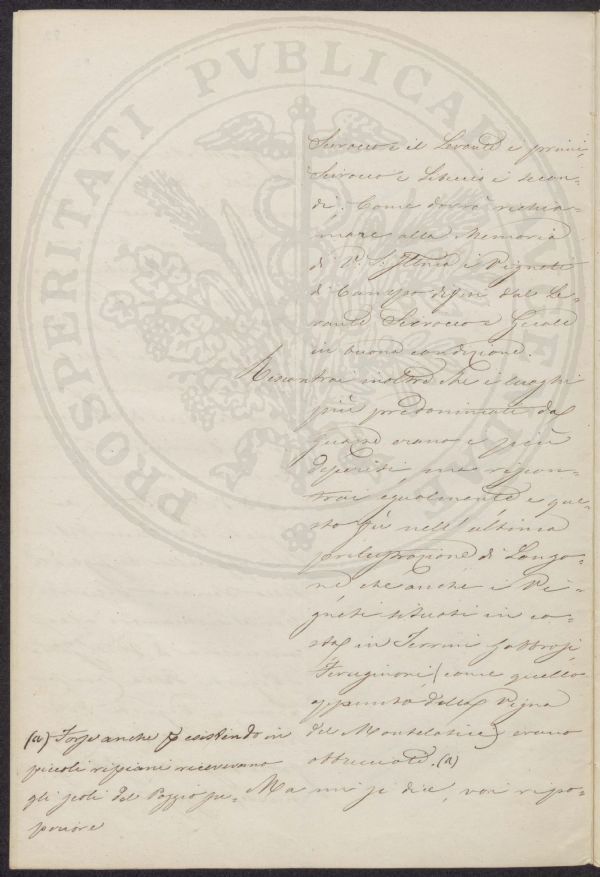 PROSPERITATI PVBLICAE AVGENDAE
Scirocco e il Levante i primi,
Scirocco e Libeccio i secon-
di. Come dovrò richia-
mare alla Memoria
di V. S. Illma i Vigneti
di Campo difesi dal Le-
vante Scirocco e
in buona condizione.
Riscontrai inoltre che i luoghi
più predominati dal
erano i più
deperiti, ma riscon-
trai egualmente e que-
sto fù nell'ultima
perlustrazione di Longo-
ne che anche i Vi-
gneti situati in co-
sta in Terreni Sabbrosi
Feruginosi (come quello
appunto della Vigna
del) erano
attaccati. (a)
(a) Forse anche esistendo in
piccoli ripiani ricevevano
gli scoli del Poggio su-
periore
Ma mi si dice, voi rispo-